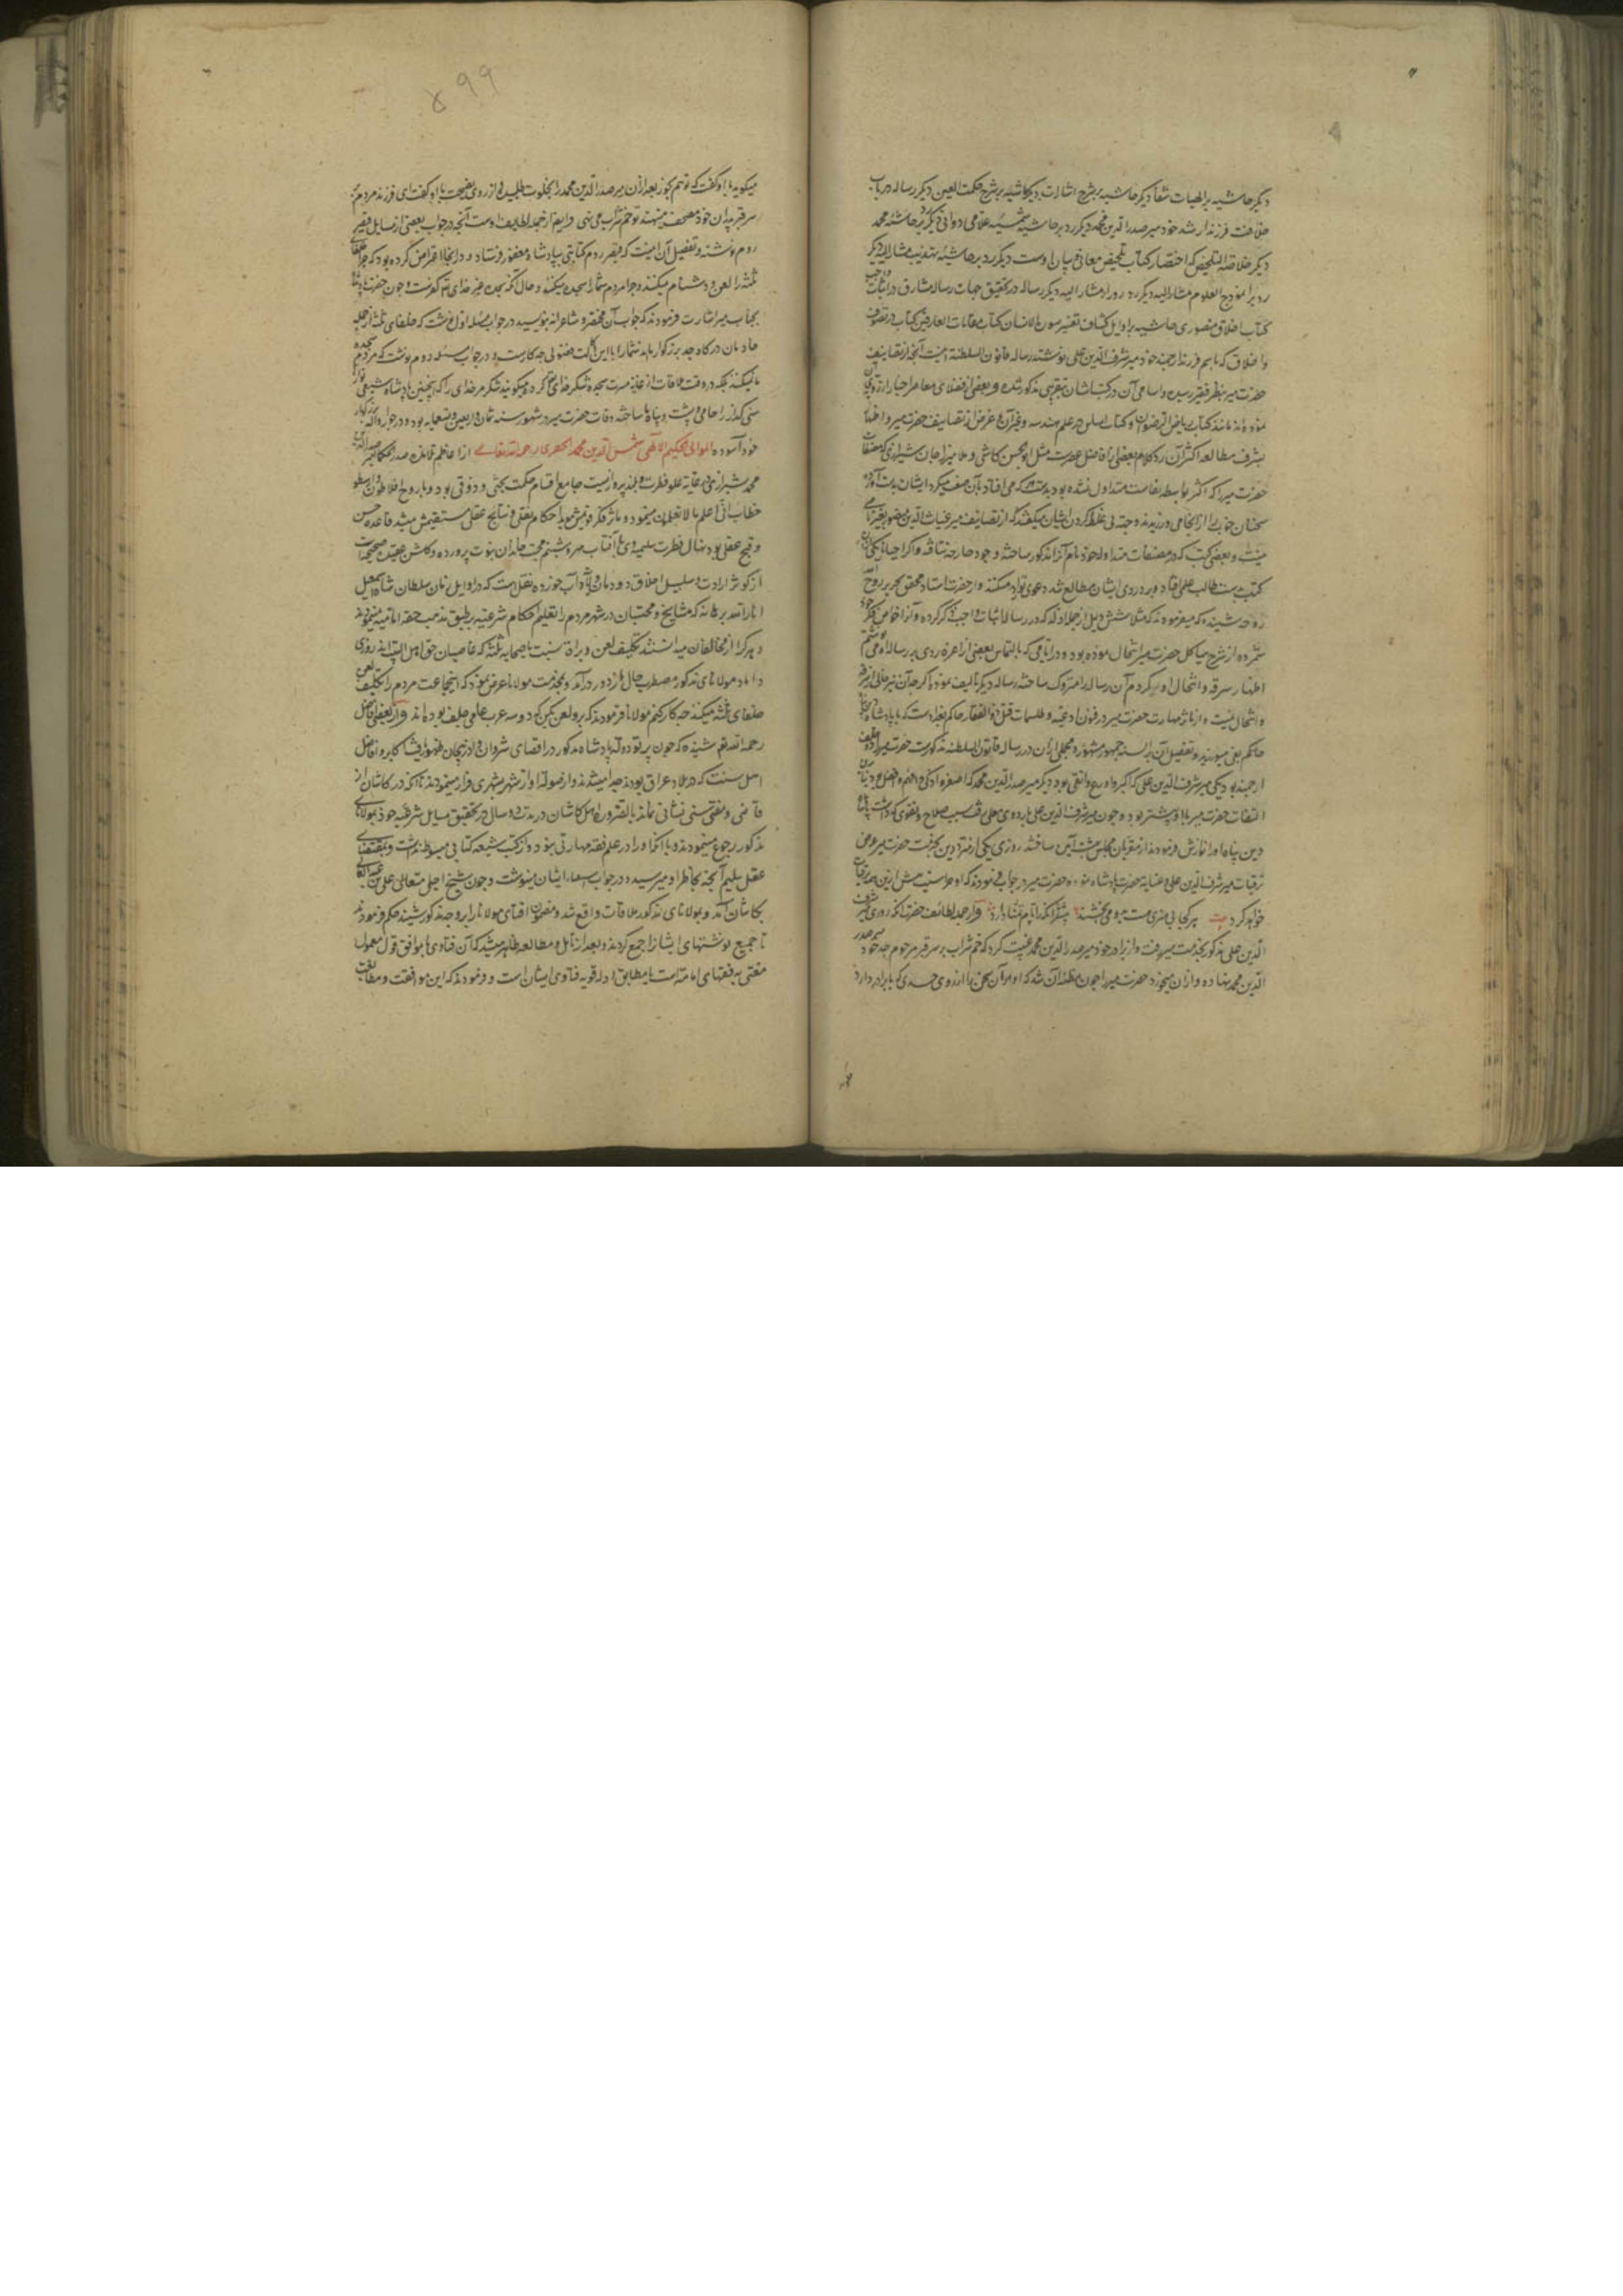 دیگر حاشیه بر الهیات شفا دیگر حاشیه بر شرح اشارات دیگر حاشیه بر شرح حکمت العین دیگر رساله در باب
خلافت فرزند ارشد خود میر صدر الدین محمد دیگر رد بر حاشیه شمسیه علامی دوانی دیگر رد بر حاشیه
دیگر خلاصه التلخیص که اختصار کتاب تلخیص معانی و بیان اوست دیگر رد بر حاشیه تهذیب مشار الیه دیگر
رد بر انموذج العلوم مشار الیه دیگر رد زورا مشار الیه دیگر رساله در تحقیق جهات رساله مشارق در اثبات واجب
کتاب اخلاق منصوری حاشیه بر اوایل کشاف تفسیر سوره الانسان کتاب مقامات العارفین کتاب در تصوف
و اخلاق که باسم فرزند ارجمند خود میر شرف الدین علی نوشته رساله قانون السلطنة اینست آنچه از تصانیف
حضرت میر بنظر فقیر رسیده و اسامی آن در کتب ایشان بتقریبی مذکور شده و بعضی از فضلای معاصر
نموده اند مانند کتاب ریاض الرضوان و کتاب اساس در علم هندسه و غیر آن و غرض از تصانیف حضرت میر و
بشرف مطالعه اکثر آن رد کلام بعضی افاضل عصرست مثل ابو الحسن کاشی و ملا میرزا جان شیرازی که مصنفات
حضرت میر را که اکثر بواسطه نفاست متداول نشده بود بدست هر که می افتاد بآن صف میکرد ایشان بدست آورده
سخنان خوب را از انجا می دزدیدند و جهة پی غلط کردن ایشان میگفتند که از تصانیف میر غیاث الدین منصور بغیر نامی
نیست و بعضی کتب که در مصنفات متداوله خود نام آنرا مذکور ساخته وجود خارجی نیافته و اگر احیانا یکی از ان
کتب بدست طالب علمی افتاد و بر دزدی ایشان مطالع شد دعوی توارد میکنند و از حضرت استاد محقق نحریر روح
روحه شنیده که میفرمودند که مثلا شش دلیل از جمله ادله که در رساله اثبات واجب ذکر کرده و آنرا خواص فکر خود
شمرده از شرح هیاکل حضرت میر انتحال نموده بود و در ایامی که بالتماس بعضی از اعزه ردی بر رساله او می نوشتم
اظهار سرقه و انتحال او میکردم آن رساله را متروک ساخته رساله دیگر تالیف نمود و اگر چه آن نیز خالی از سرقه
و انتحال نیست و از مآثر مهارت حضرت میر در فنون ادعیه و طلسمات قتل ذو الفقار حاکم بغداد است که با پادشاه
حاکم بغی میورزید و تفصیل آن بر السنه جمهور مشهور و مجملی از ان در رساله قانون السلطنه مذکورست حضرت میر را دو خلف
ارجمند بود یکی میر شرف الدین علی که اکبر و اورع و اتقی بود دیگر میر صدر الدین محمد که اصغر و اذکی و افهم و افضل بود
التفات حضرت میر با او بیشتر بود و چون میر شرف الدین علی باردوی معلی رفت بسبب صلاح و تقوی که داشت پادشاه
دین پناه او را نوازش فرمودند از مقربان مجلس بهشت آیین ساختند روزی یکی از متردین بخدمت حضرت میر عرض
ترقیات میر شرف الدین علی و عنایه حضرت پادشاه نمود و حضرت میر در جواب فرمودند که او خر است پیش ازین هم ترقیات
خواهد کرد بیت هر کجا بی هنری هست برو می بخشند بیشتر آنکه را نام بتا دارد و از جمله لطائف حضرت آنکه روزی میر شرف
الدین علی مذکور بخدمت میر رفت و از برادر خود میر صدر الدین محمد غیبت کرد که خم شراب بر سر قبر مرحوم جد خود میر صدر
الدین محمد نهاده و از ان میخورد حضرت میر را چون مظنه آن شد که او مر آن سخن را از روی حسدی که با برادر دارد
۴۹۹
میگوید با او گفت که تو هم بخور بعد از ان میر صدر الدین محمد را بخلوت طلبید و از روی نصیحت باو گفت ای فرزند مردم
سر قبر پدران خود مصحف مینهند تو خم شراب می نهی و ایضا از جمله لطایف اوست آنچه در جواب بعضی از مسایل قیصر
روم نوشته و تفصیل آن اینست که قیصر روم کتابتی بپادشاه مغفور فرستاد و در انجا اعتراض کرده بود که چرا خلفای
ثلثه را لعن و دشنام میکنند و چرا مردم شما را سجده میکنند و حال آنکه سجده غیر خدای تعالی کفرست و چون حضرت پادشاه
بجناب میر اشارت فرمودند که جواب آن مختصر و شاعرانه بنویسید در جواب مسئله اول نوشت که خلفای ثلثه از جمله
خادمان درگاه جد بزرگوار مایند شما را با این کت فضولی چه کارست و در جواب مسئله دوم نوشت که مردم سجده
ما نمیکنند بلکه در وقت ملاقات از غایت مسرت سجده شکر خدای تعالی کرده میگویند شکر مر خدای را که اینچنین پادشاه شیعی نواز
سنی گداز را حامی و پشت و پناه ما ساخته وفات حضرت میر در شهور سنه ثمان و اربعین و تسعمایه بود و در جوار والد بزرگوار
خود آسوده المولی الحکیم الالهی شمس الدین محمد الخفری رحمه الله تعالی از اعاظم تلامذه صدر الحکما میر صدر الدین
محمد شیرازی بغایة علو فطرت و بلند پروازیست جامع اقسام حکمت بحثی و ذوقی بود و با روح افلاطون و ارسطو
خطاب انی اعلم ما لا تعلمون مینمود و مآثر فکر قویمش مؤید احکام نقل و نتایج عقل مستقیمش مشید قاعده حسن
و قبح عقل بود نهال فطرت سلیمه وی با آفتاب مهر و شبنم محبت خاندان نبوت پرورده و گلشن عقیده صحیحه اش
از کوثر ارادت و سلسبیل اخلاق دودمان ولایت آب خورده نقل است که در اوایل زمان سلطان شاه اسمعیل
انار الله برهانه که مشایخ و محتسبان در شهر مردم را تعلیم احکام شرعیه بر طبق مذهب حقه امامیه مینمودند
و هر کرا از مخالفان میدانستند تکلیف لعن و براة نسبت باصحابه ثلثه که غاصبان حق اهل البیت اند روزی
داماد مولانای مذکور مضطرب حال از در درآمد و بخدمت مولانا عرض نمود که اینجماعت مردم را تکلیف لعن
خلفای ثلثه میکنند چه کار کنیم مولانا فرمودند که برو لعن بکن که دو سه عرب عامی جلف بوده اند و از بعضی افاضل
رحمه الله تعالی شنیده که چون پرتو دولت پادشاه مذکور در اقصای شروان و اذربیجان ظهور یافت اکابر و افاضل
اهل سنت که در بلاد عراق بودند صدا میشدند و از صولت او از شهر بشهری فرار مینمودند تا آنکه در کاشان از
قاضی و مفتی سنی نشانی نماند بالضروره اهل کاشان در مدت دو سال در تحقیق مسایل شرعیه خود بمولانای
مذکور رجوع مینمودند و با آنکه او را در علم فقه مهارتی نبود و از کتب شیعه کتابی مبسوط نداشت و بمقتضای
عقل سلیم آنچه بخاطر او میرسید در جواب استفتای ایشان مینوشت و چون شیخ اجل متعالی علی بن عبد العالی
بکاشان آمد و بمولانای مذکور ملاقات واقع شد و مضمون افتای مولانا را بر وجه مذکور شنید حکم فرمودند
تا جمیع نوشتهای ایشانرا جمع کردند و بعد از تامل و مطالعه ظاهر شد که آن فتاوی یا موافق قول معمول
مفتی به فقهای امامیه است یا مطابق ادله قویه فتاوی ایشان است و فرمودند که این موافقت و مطابقت